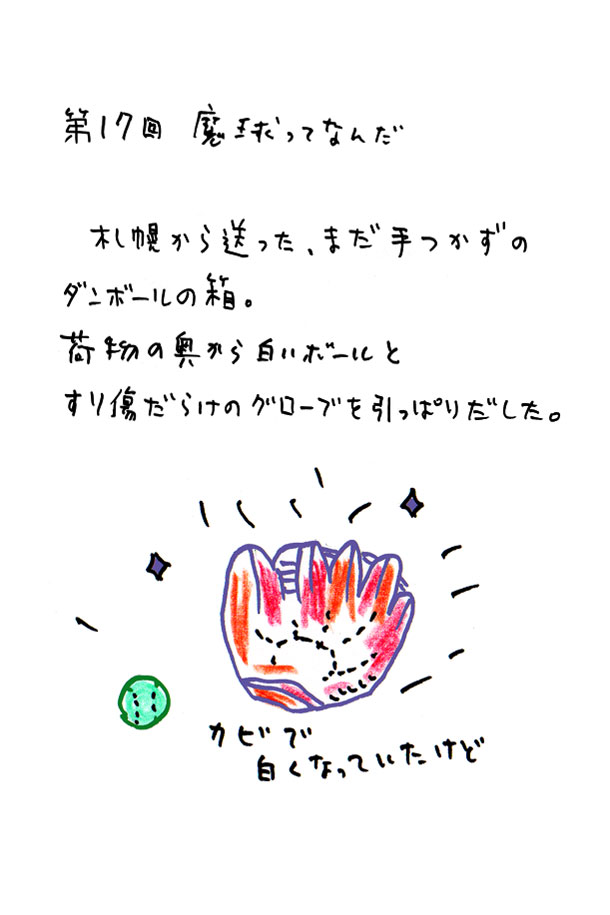 第17回 魔球ってなんだ
札幌から送った、まだ手つかずの
ダンボールの箱。
荷物の奥から白いボールと
すり傷だらけのグローブを引っぱりだした。
カビで
白くなっていたけど